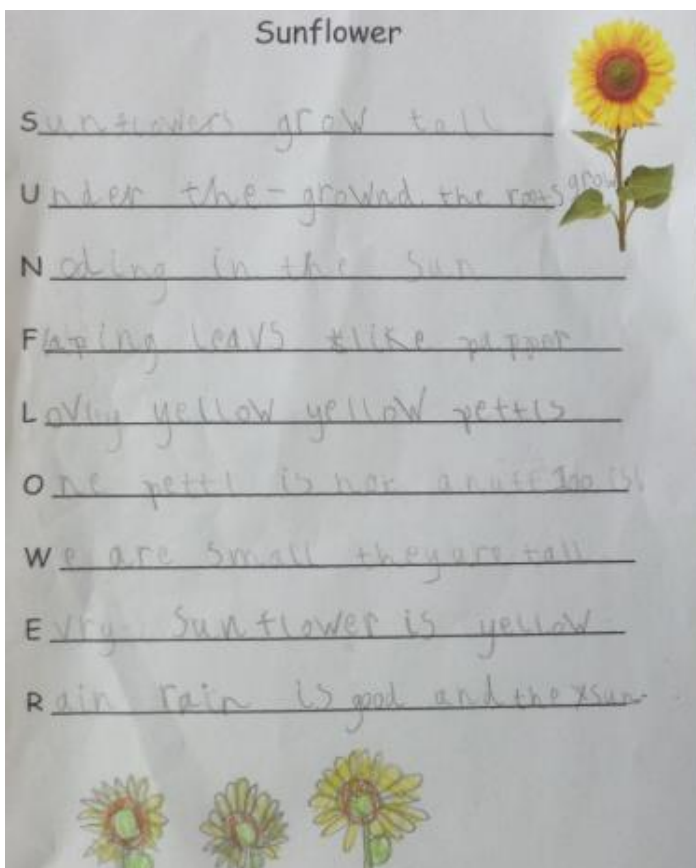 Sunflower
Sunflowers grow tall
Under the-grownd the roots grow
Noding in the Sun
Flaping leavs like pupper
Lovley yellow yellow pettls
One pettl is not anuff 100 is!
We are small they are tall
Evry Sunflower is yellow
Rain rain is good and the sun